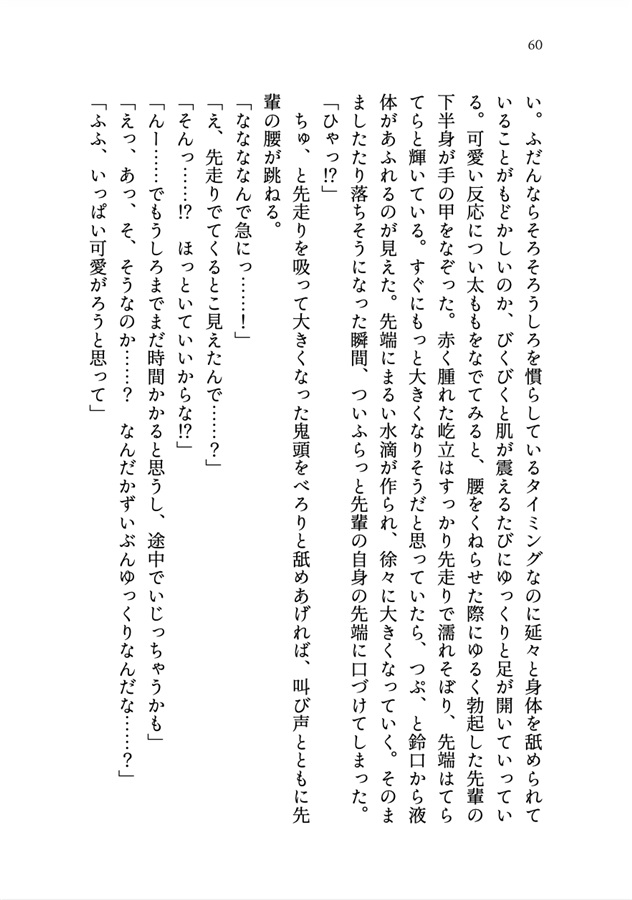 60
い。ふだんならそろそろうしろを慣らしているタイミングなのに延々と身体を舐められて
いることがもどかしいのか、びくびくと肌が震えるたびにゆっくりと足が開いていってい
る。可愛い反応につい太ももをなでてみると、腰をくねらせた際にゆるく勃起した先輩の
下半身が手の甲をなぞった。赤く腫れた屹立はすっかり先走りで濡れそぼり、先端はてら
てらと輝いている。すぐにもっと大きくなりそうだと思っていたら、つぷ、と鈴口から液
体があふれるのが見えた。先端にまるい水滴が作られ、徐々に大きくなっていく。そのま
ましたたり落ちそうになった瞬間、ついふらっと先輩の自身の先端に口づけてしまった。
「ひゃっ!?」
　ちゅ、と先走りを吸って大きくなった鬼頭をべろりと舐めあげれば、叫び声とともに先
輩の腰が跳ねる。
「なななななんで急にっ……！」
「え、先走りでてくるとこ見えたんで……？」
「そんっ……!?　ほっといていいからな!?」
「んー……でもうしろまでまだ時間かかると思うし、途中でいじっちゃうかも」
「えっ、あっ、そ、そうなのか……？　なんだかずいぶんゆっくりなんだな……？」
「ふふ、いっぱい可愛がろうと思って」